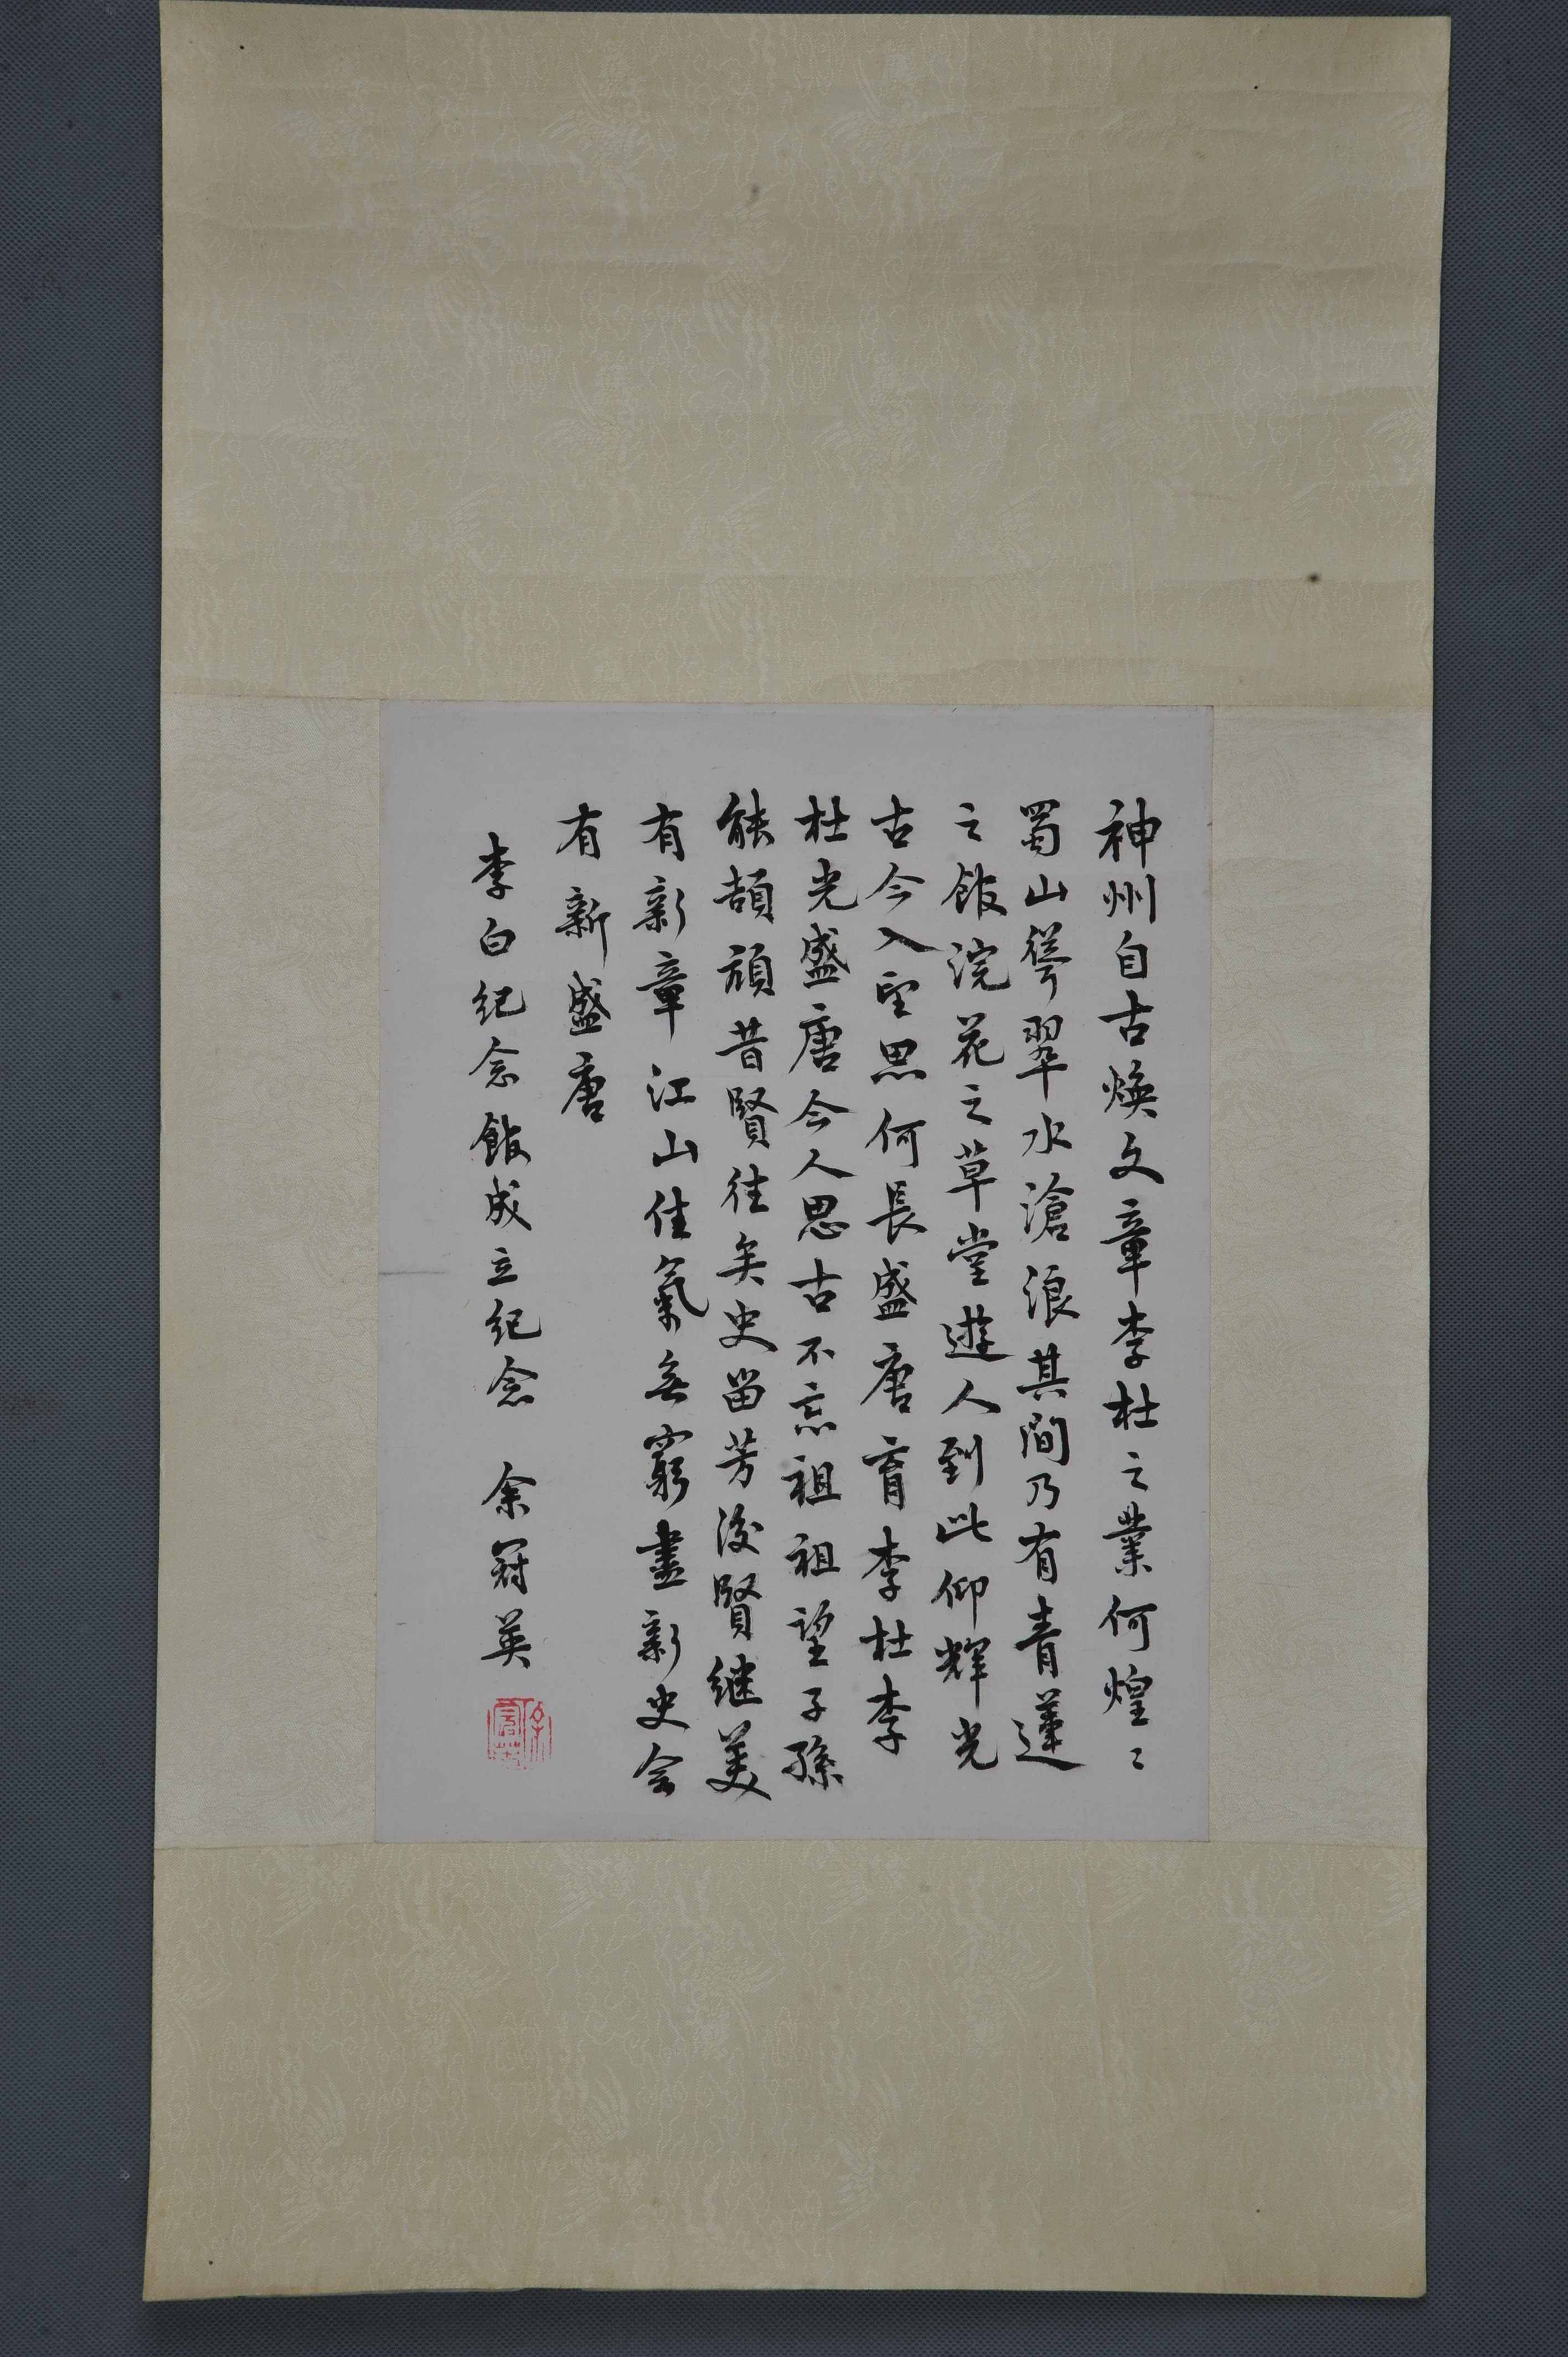 神州自古焕文章李杜之業何煌〻
蜀山聳翠水滄浪其間乃有青蓮
之館浣花之草堂遊人到此仰輝光
古今入望思何長盛唐育李杜李
杜光盛唐今人思古不忘祖祖望子孫
能頡頏昔賢往矣史留芳後賢继美
有新章江山佳氣無窮盡新史会
有新盛唐
李白纪念館成立纪念 余冠英